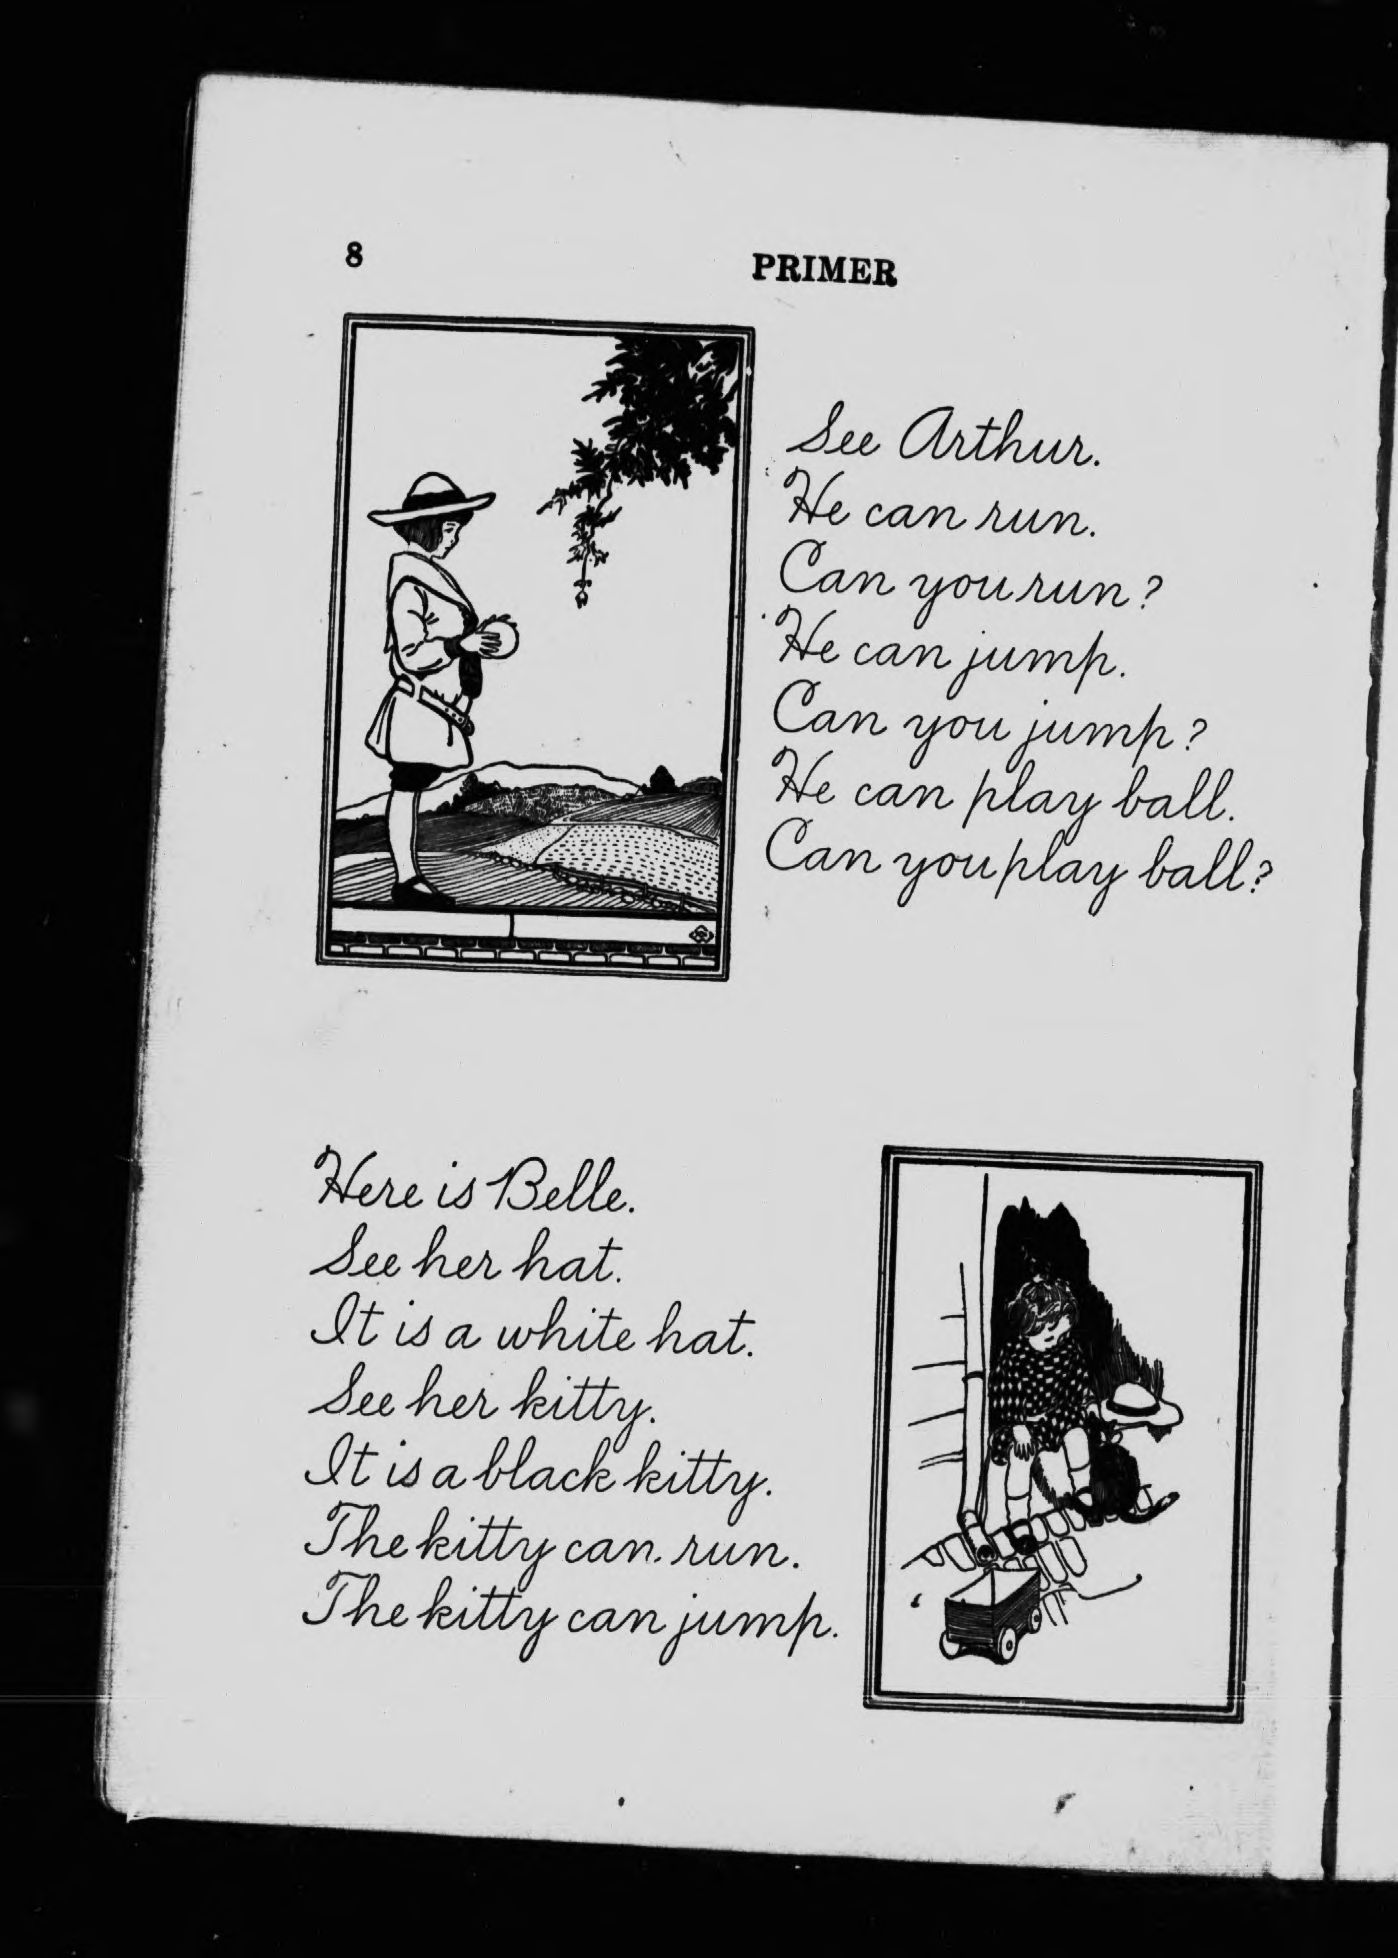 8
PRIMER
See Arthur.
He can run.
Can you run?
He can jump.
Can you jump?
He can play ball.
Can you play ball?
Here is Belle.
See her hat.
It is a white hat.
See her kitty.
It is a black kitty.
The kitty can run.
The kitty can jump.